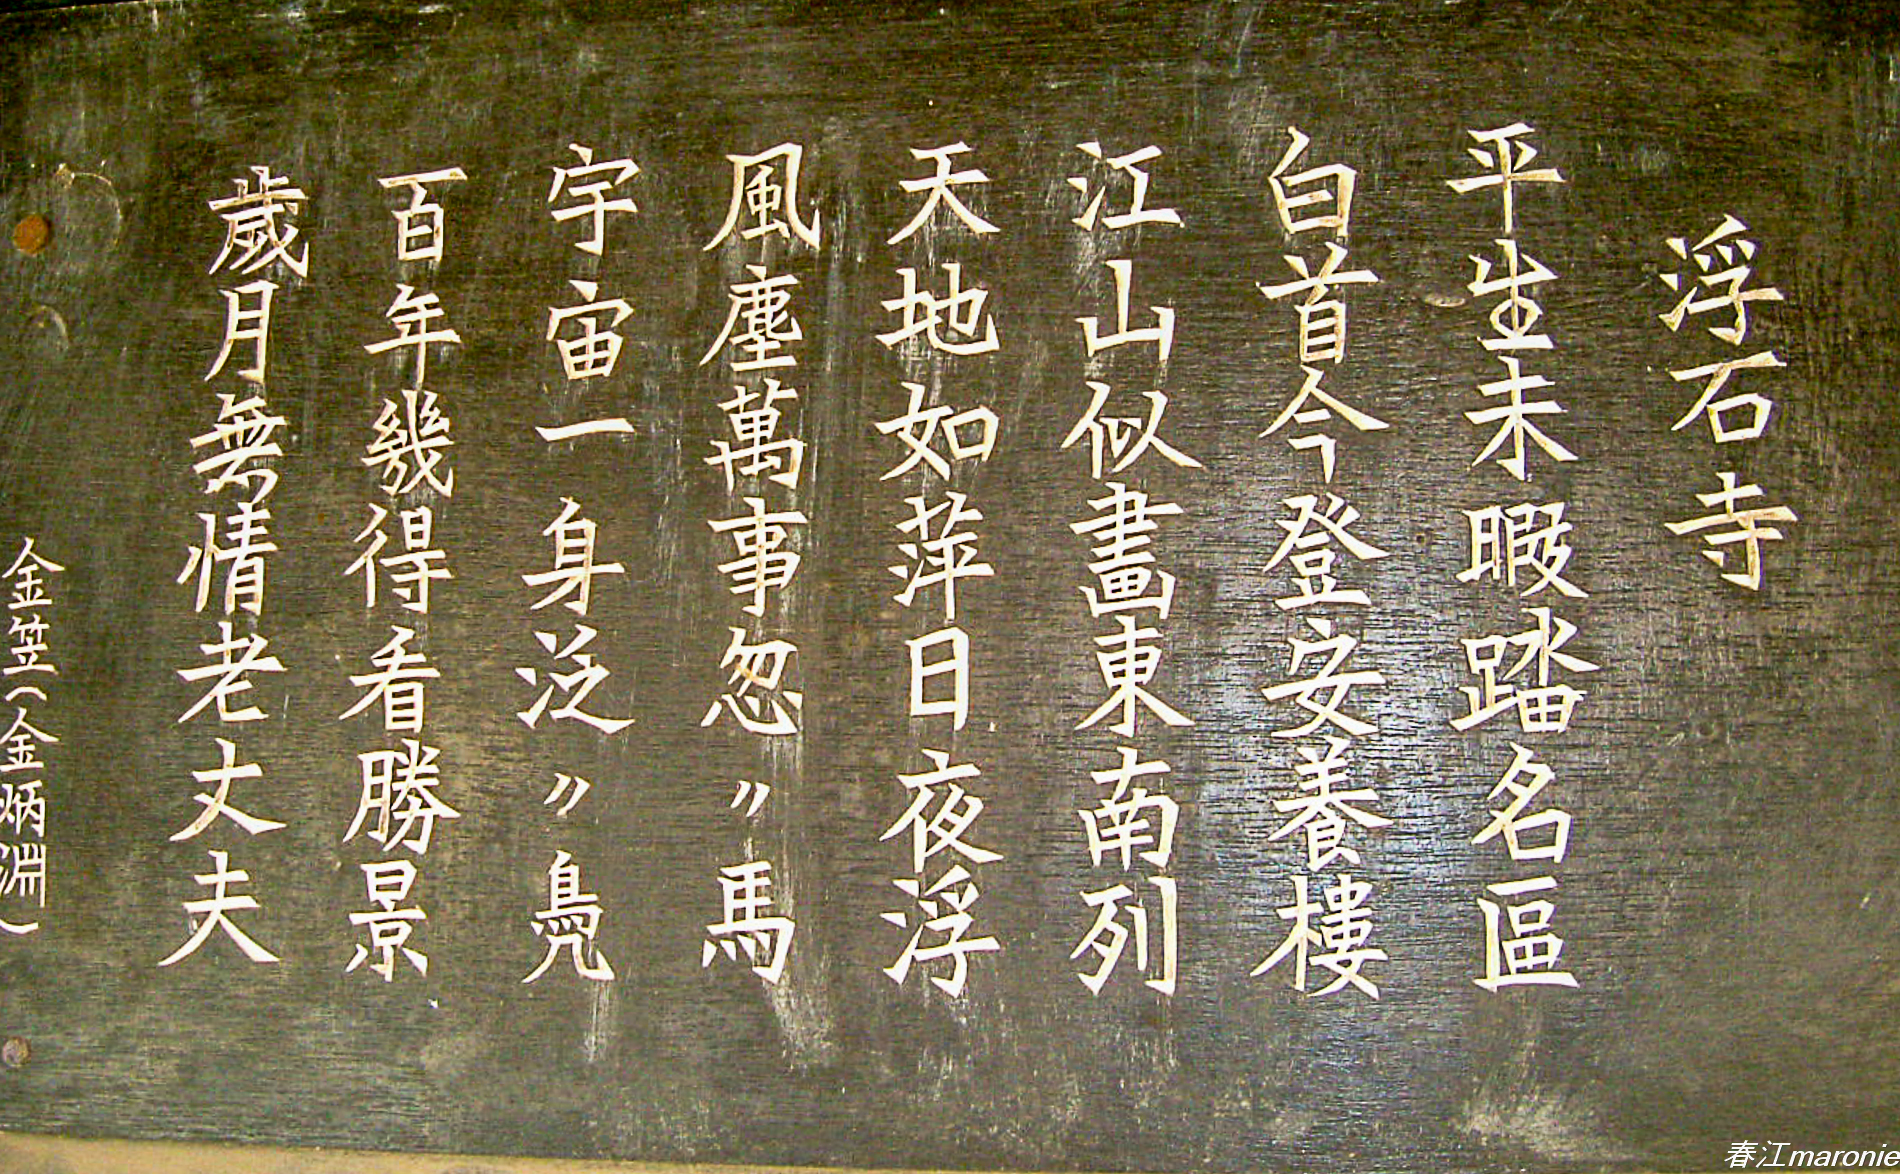 浮石寺
平生未暇踏名區
白首今登安養樓
江山似畫東南列
天地如萍日夜浮
風塵萬事忽〃馬
宇宙一身泛〃鳧
百年幾得看勝景
歲月無情老丈夫
金笠(金炳淵)
春江maronie